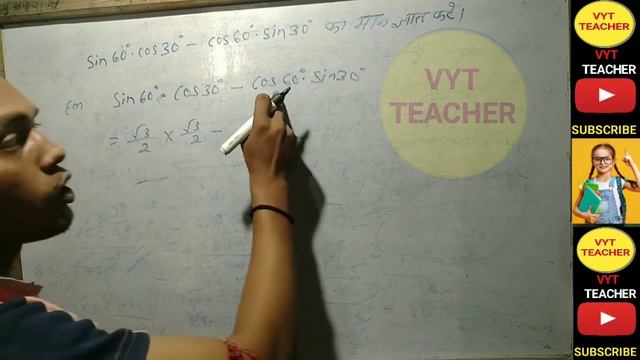 sin60°.cos30° - cos60°.sin30° का मान ज्ञात करें।
sin60°.cos30° - cos60°.sin30°
= √3/2 × √3/2 -
VYT
TEACHER
VYT
TEACHER
SUBSCRIBE
VYT
TEACHER
SUBSCRIBE